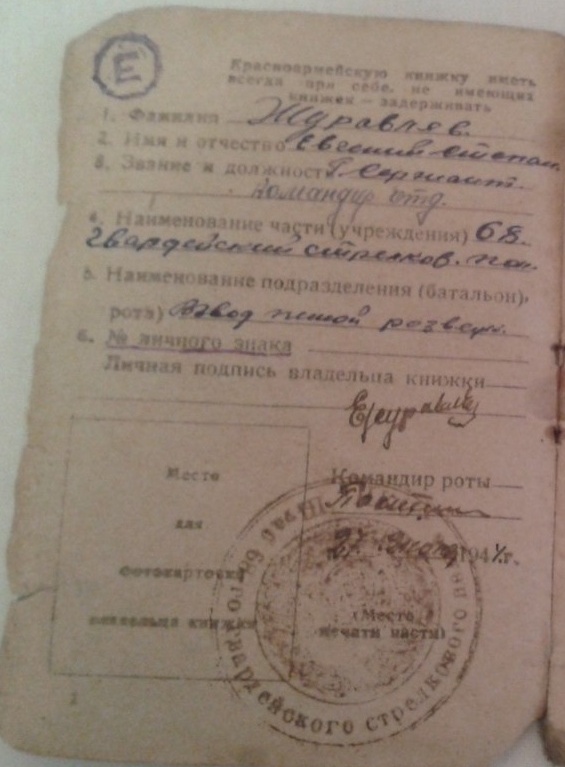 Е
Красноармейскую книжку иметь
всегда при себе. не имеющих
книжек — задерживать
1. Фамилия Журавлев.
2. Имя и отчество Евгений Степан.
3. Звание и должност Г. Сержант.
Командир отд.
4. Наименование части (учреждения) 68.
Гвардейский стрелков. пол.
5. Наименование подразделения (батальон),
рота) Взвод пешой розведк.
6. № личного знака
Личная подпись владельца книжки
Командир роты
27 1944 г.
Место
для
фотокарточки
владельца книжки
(Место
печати части)
гвардейского стрелкового